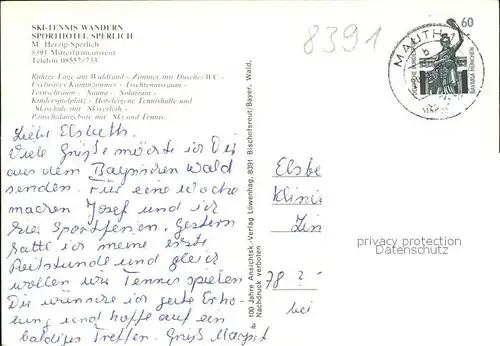 SKI-TENNIS-WANDERN
SPORTHOTEL SPERLICH
M. Herzig-Sperlich
8391 Mitterfirmiansreut
Telefon 08557/733
Ruhige Lage am Waldrand - Zimmer mit Dusche/WC -
Exclusives Kaminzimmer - Tischtennisraum -
Fernsehraum - Sauna - Solarium -
Kinderspielplatz - Hoteleigene Tennishalle und
Skischule mit Skiverleih -
Pauschalangebote mit Ski und Tennis.
8391
MAUTH
60
DEUTSCHE BUNDESPOST
BAVARIA MÜNCHEN
Liebe Elsbeth.
Viele Grüße möchte ich Dir
aus dem Bayrischen Wald
senden. Für eine Woche
machen Josef und ich
hier Sportferien. Gestern
hatte ich meine erste
Reitstunde und gleich
wollen wir Tennis spielen
Dir wünsche ich gute Erho-
lung und hoffe auf ein
baldiges Treffen. Gruß Margret
100 Jahre Ansichtsk.-Verlag Löwenhag, 8391 Bischofsreut/Bayer. Wald.
Nachdruck verboten
Elsbe
Klinik
78 ?
bei
privacy protection
Datenschutz